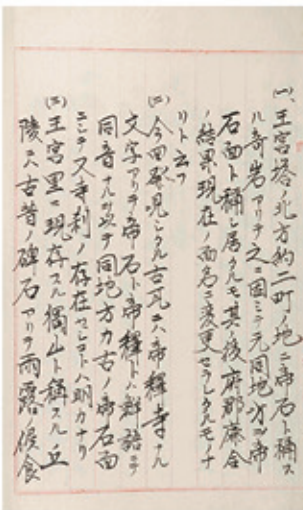 (一)、王宮塔ノ北方約二町ノ地ニ帝石ト稱ス
ル奇岩アリテ之ニ因ミテ元同地方ヲ帝
石面ト稱シ居タルモ其後府郡廃合
ノ結果現在ノ面名ニ変更セラレタルモノナ
リト云フ
(二)今回発見シタル古瓦ニハ帝釋寺ナル
文字アリテ帝石ト帝釋トハ鮮語ニテ
同音ナルヲ以テ同地方カ古ノ帝石面
ニシテ又寺刹ノ存在セシコトハ明カナリ
(三)王宮里ニ現存スル獨山ト稱スル丘
陵ニハ古昔ノ碑石アリテ雨露ノ侵食